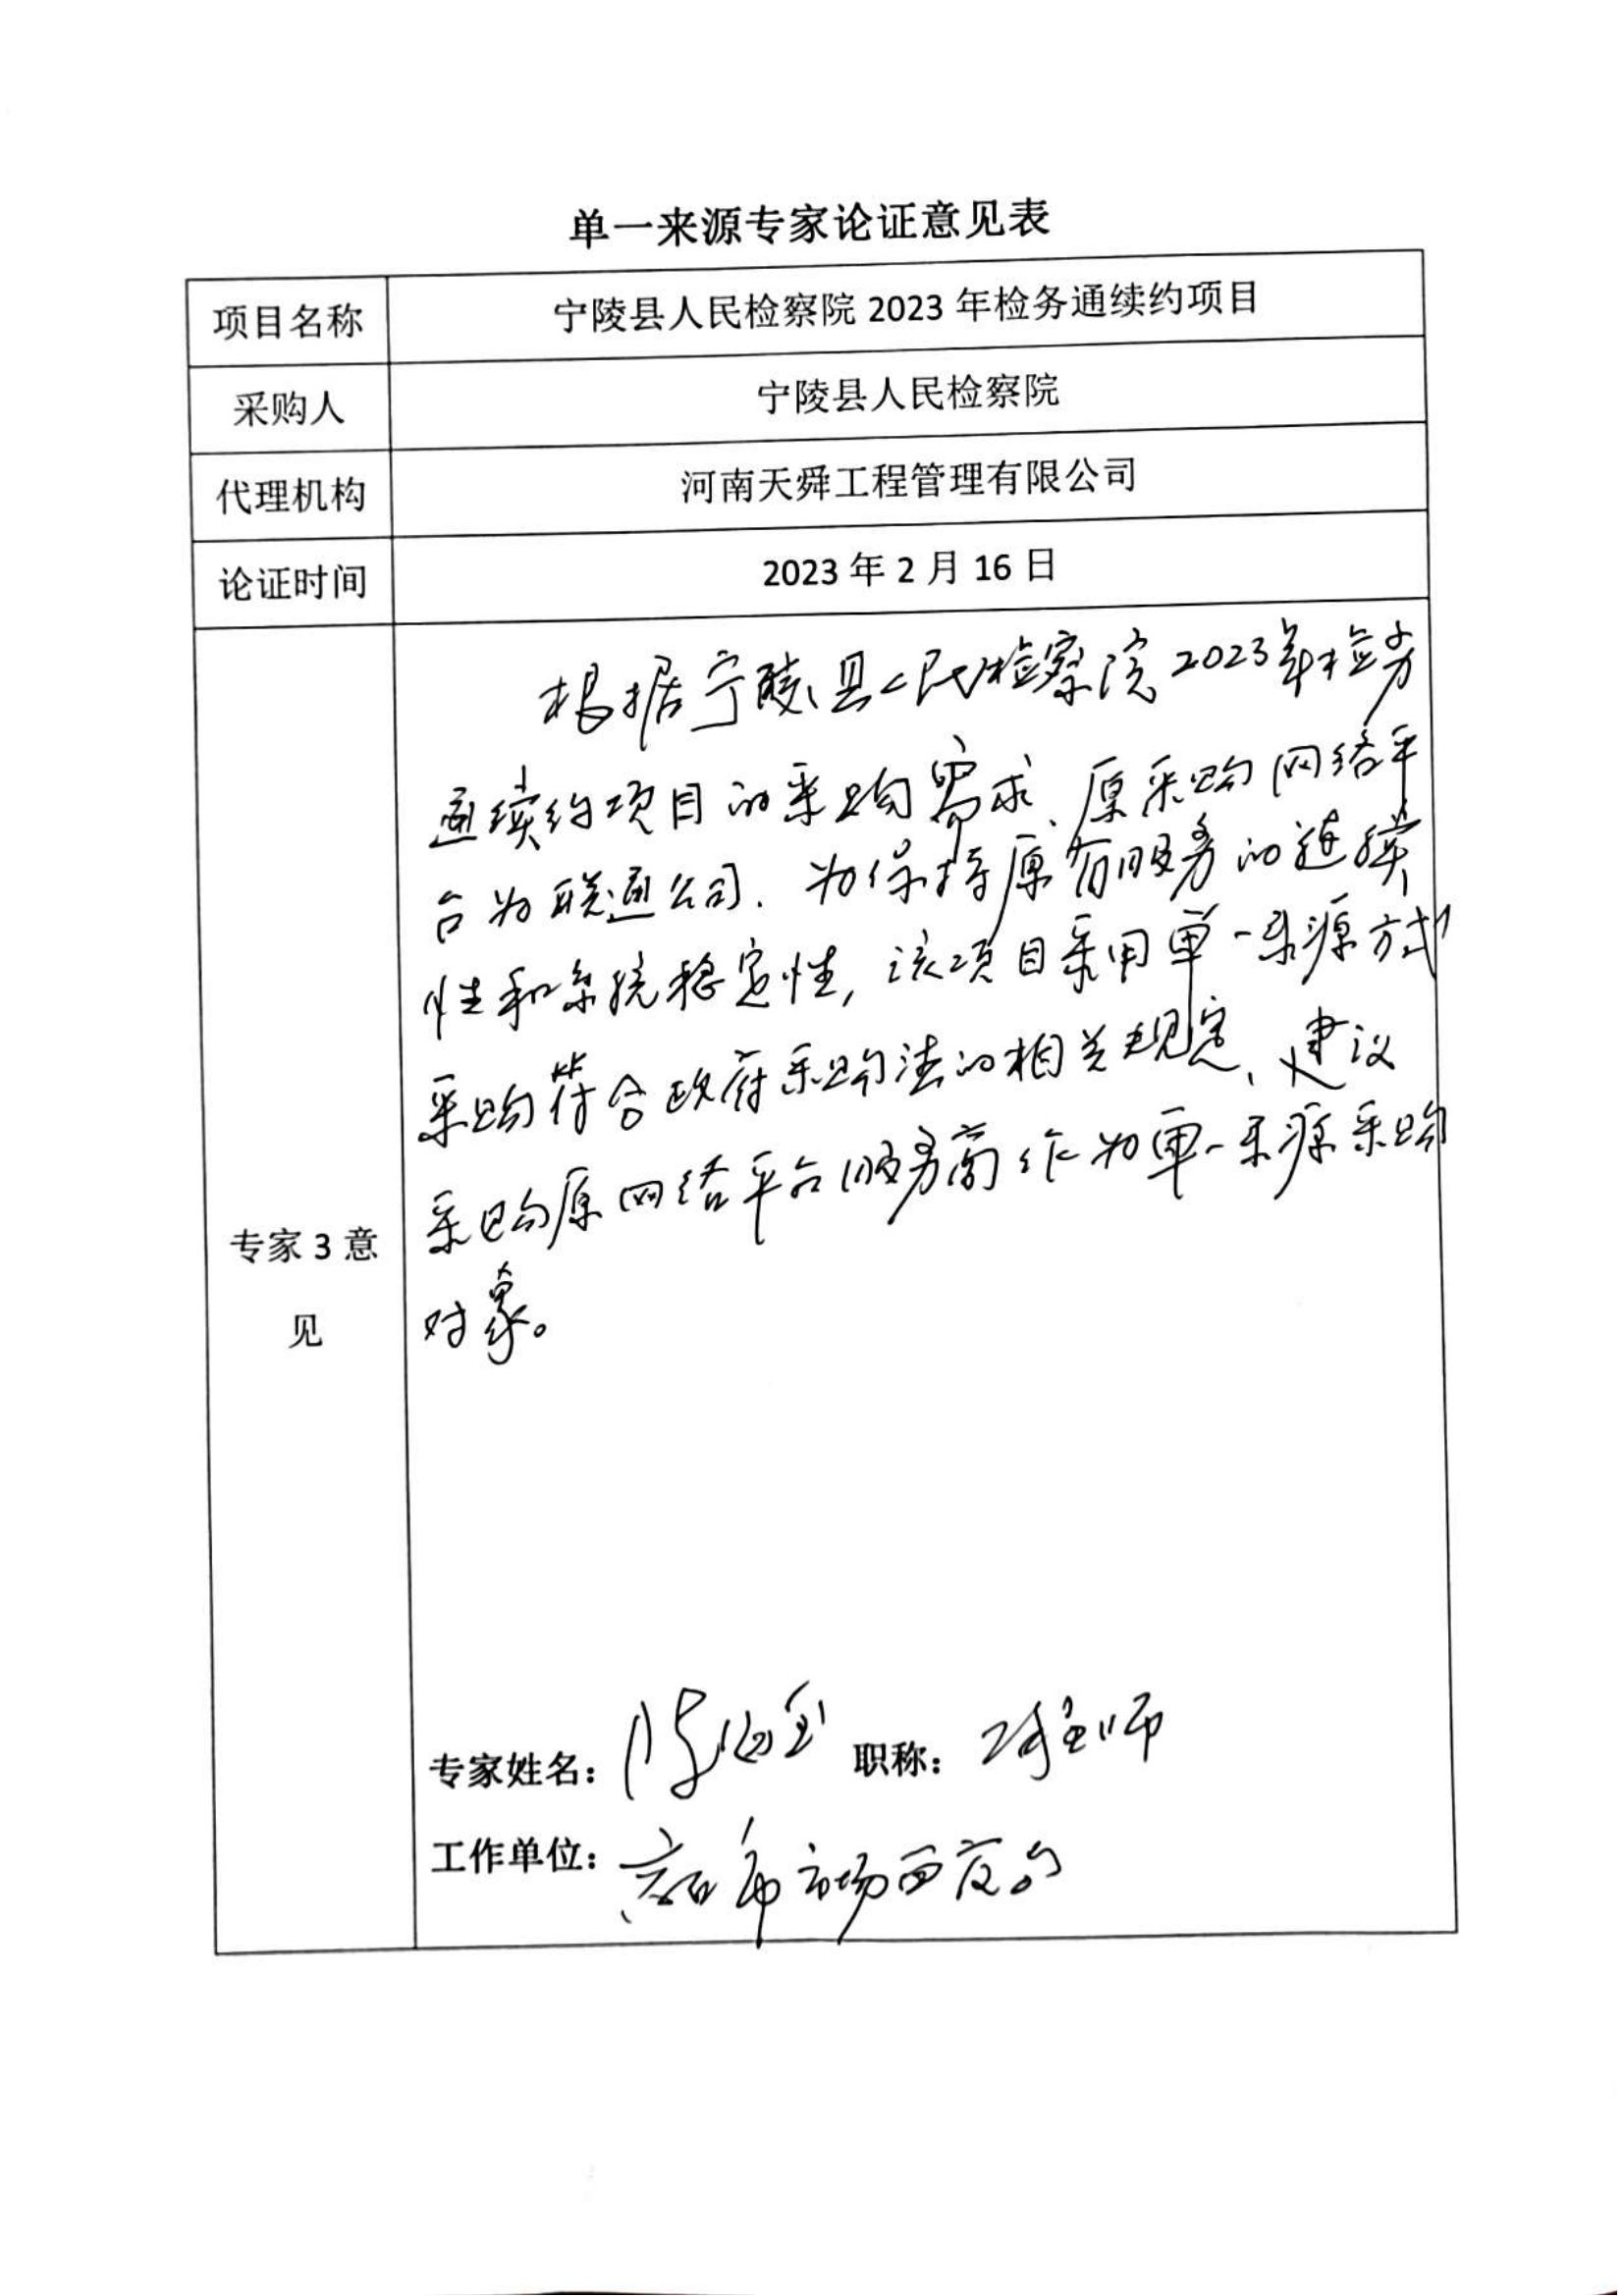 单一来源专家论证意见表
项目名称 宁陵县人民检察院 2023 年检务通续约项目
采购人 宁陵县人民检察院
代理机构 河南天舜工程管理有限公司
论证时间 2023 年 2 月 16 日
根据宁陵县人民检察院2023年检务
通续约项目的采购需求、原采购网络平
台为联通公司.为保持原有服务的连续
性和系统稳定性,该项目采用单一来源方式
采购符合政府采购法的相关规定、建议
采购原网络平台服务商作为单一来源采购
对象。
专家 3 意
见
专家姓名: 职称: 师
工作单位: 市场